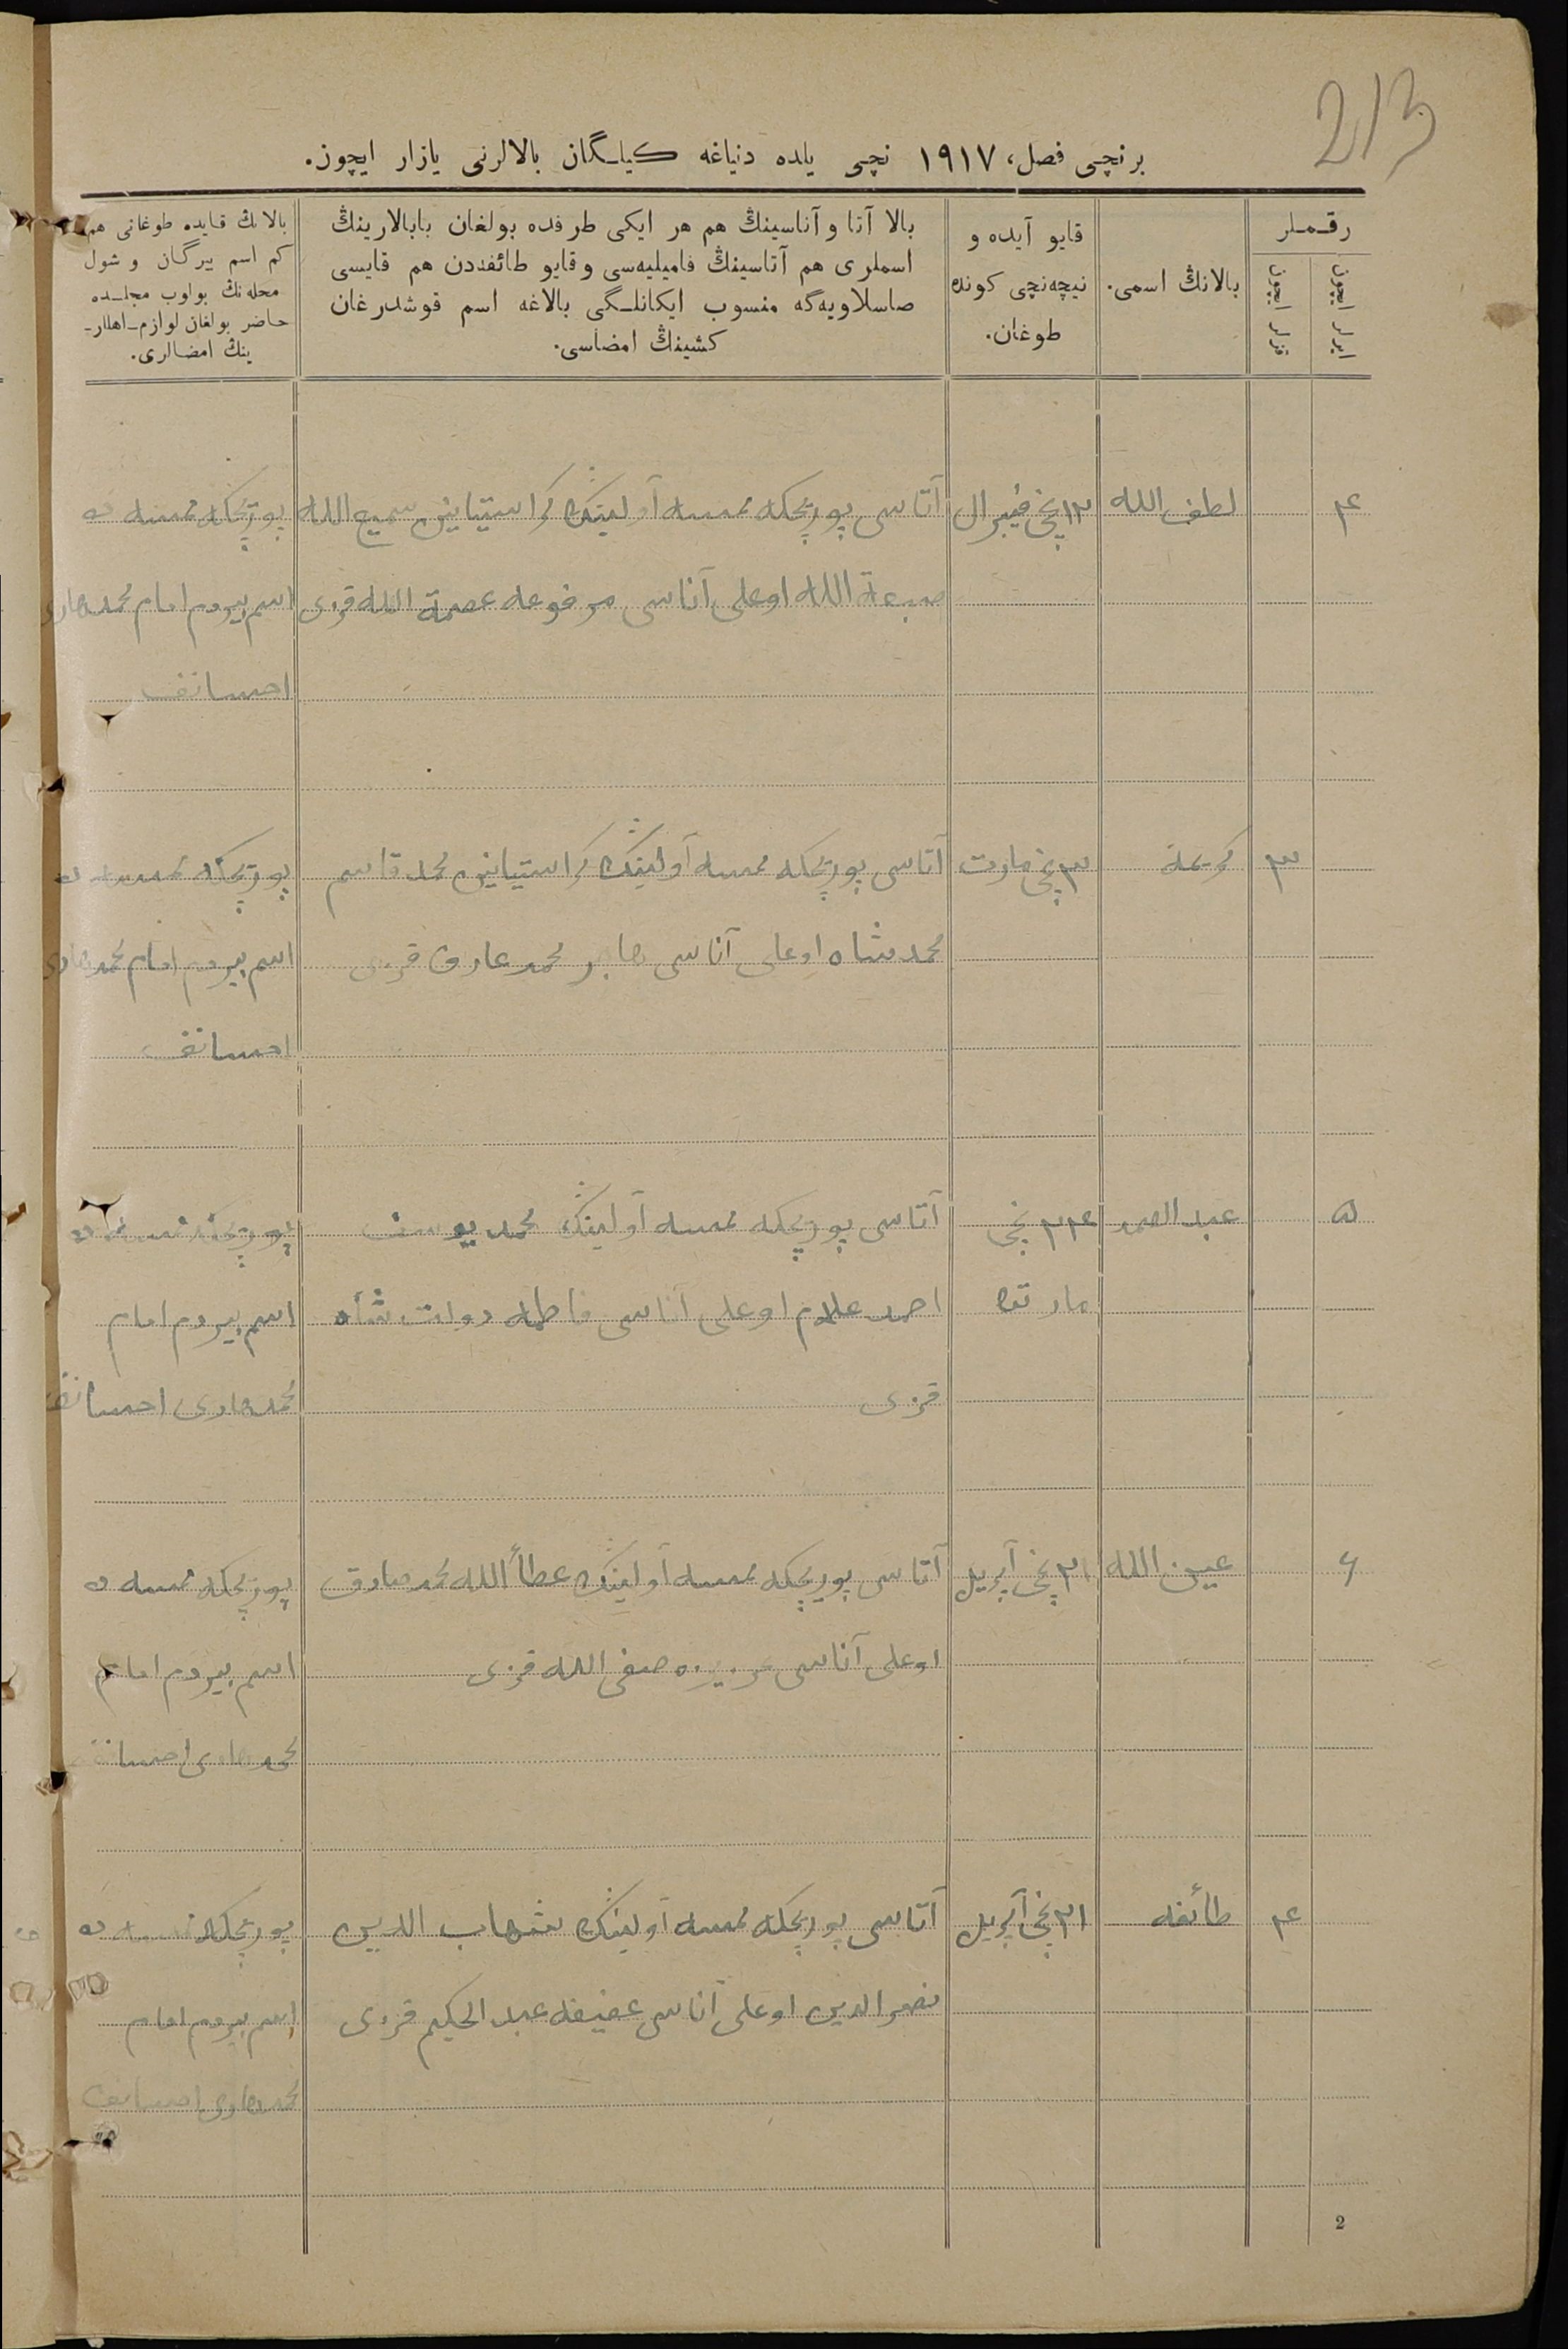 213
برنچی فصل، ١٩١٧ نچی یلده دنیاغه کیلـگان بالالرنی یازار ایچوز.
رقـمـلر
ایرلر ایچون
قزلر ایچون
بالانڭ اسمی.
قایو آیده و
نیچه‌نچی کونده
طوغان.
بالا آتا و آناسینڭ هم هر ایکی طرفده بولغان بابالارینڭ
اسملری هم آتاسینڭ فامیلیه‌سی و قایو طائفه‌دن هم قایسی
صاسلاویه‌گه منسوب ایکانلـگی بالاغه اسم قوشدرغان
کشینڭ امضاسی.
بالانڭ قایده طوغانی هم
کم اسم بیرگان و شول
محله‌نڭ بولوب مجلـده
حاضر بولغان لوازم ـ اهللر ـ
ینڭ امضالری.
٤ لطف الله ١٣ نچی فیبرال آتاسی آولینڭ کراستیانین سمیع الله
صبغة الله اوغلی آناسی مرفوعه عصمة الله قزی اسم بیردم امام محمدهادی
احسانف
٣ کریمة ٣ نچی مارت آتاسی آولینڭ کراستیانین محمد قاسم
محمدشاه اوغلی آناسی هاجر محمد عارف قزی اسم بیردم امام محمدهادی
احسانف
٥ عبد الصمد ٢٤ نچی آتاسی آولینڭ محمد یوسف
مارتده احمد علام اوغلی آناسی فاطمه دولت شاه اسم بیردم امام
قزی محمدهادی احسانف
٦ عین الله نچی آپریل آتاسی آولینڭ عطأ الله محمد صادق
اوغلی آناسی صفی الله قزی اسم بیردم امام
محمدهادی احسانف
٤ طائفه ٢١ نچی آپریل آتاسی آولینڭ شهاب الدین
نصر الدین اوغلی آناسی عفیفه عبد الحکیم قزی اسم بیردم امام
محمدهادی احسانف
2